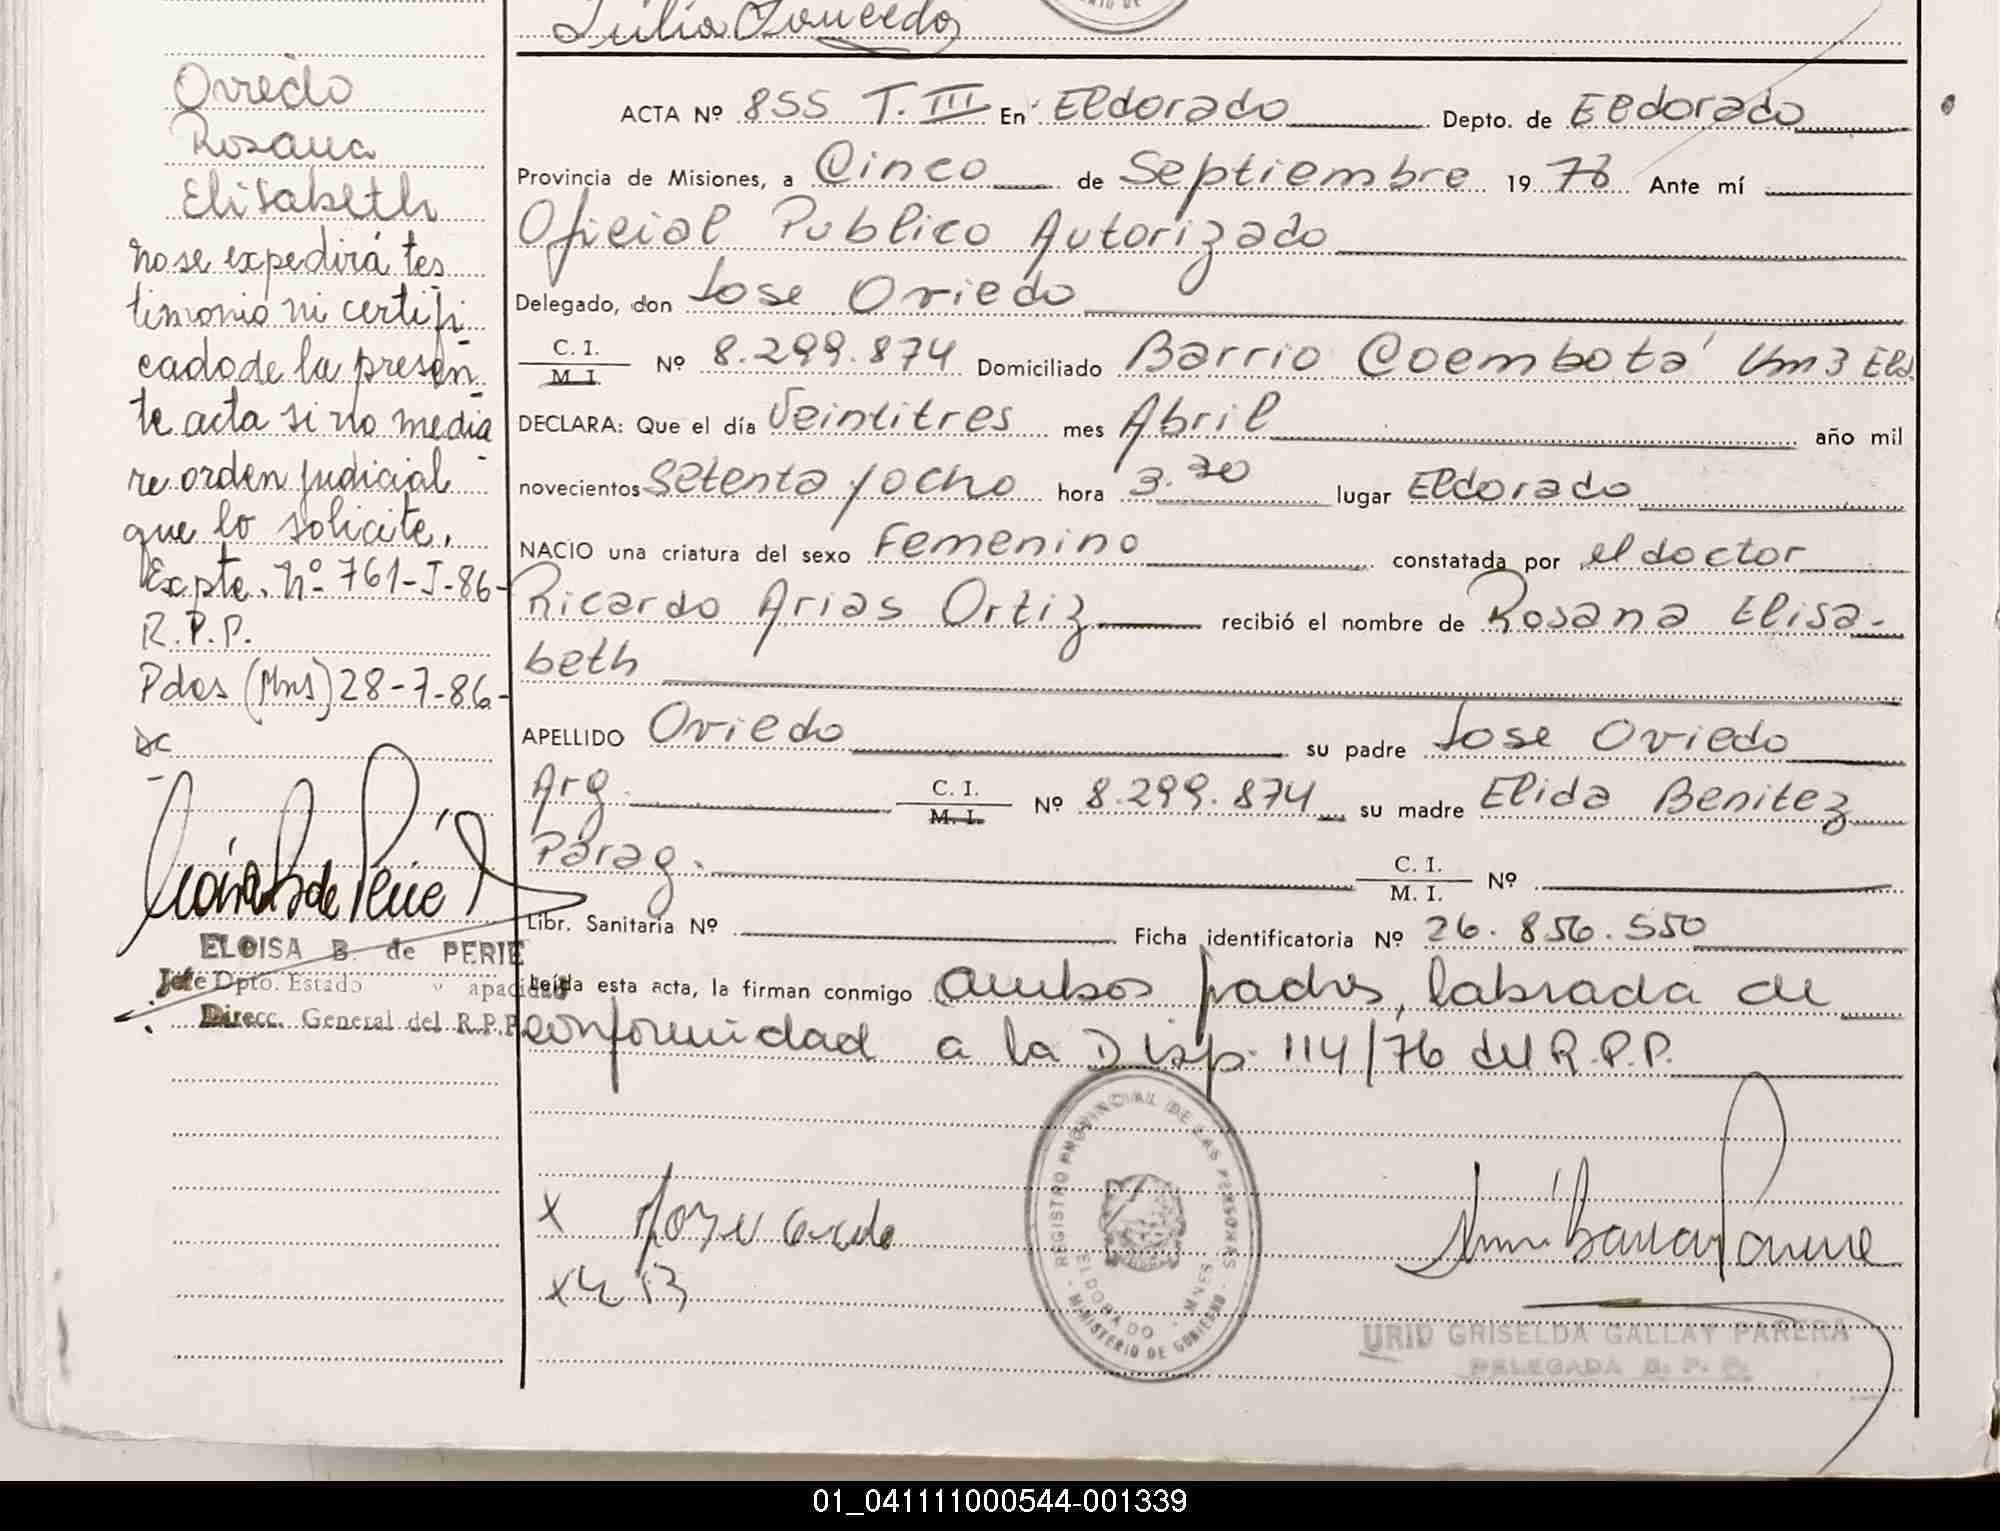 Oviedo
Rosana
Elisabeth
no se expedirá tes
timonio ni certifi
cado de la presen
te acta si no media
re orden judicial
que lo solicite.
Expte. Nº 761-J-86-
R.P.P.
Pdas (Mns) 28-7-86-
ELOISA B. de PERIE
Jefe Dpto. Estado y apacidad
Direcc. General del R.P.P.
ACTA Nº 855 T. III En Eldorado Depto. de Eldorado
Provincia de Misiones, a Cinco de Septiembre 19 78 Ante mí
Oficial Publico Autorizado
Delegado, don Jose Oviedo
C. I.
M. I. Nº 8.299.874 Domiciliado Barrio Coembota' Km 3 Eld.
DECLARA: Que el día Veintitres mes Abril año mil
novecientos Setenta y ocho hora 3. lugar Eldorado
NACIO una criatura del sexo Femenino constatada por el doctor
Ricardo Arias Ortiz recibió el nombre de Rosana Elisa-
beth
APELLIDO Oviedo su padre Jose Oviedo
Arg. C. I. M. I. Nº 8.299.874 su madre Elida Benitez
Parag. C. I. M. I. Nº
Libr. Sanitaria Nº Ficha identificatoria Nº 26.856.550
Leída esta acta, la firman conmigo ambos padres, labrada de
conformidad a la Disp. 114/76 del R.P.P.
REGISTRO PROVINCIAL DE LAS PERSONAS
ELDORADO - MNES.
MINISTERIO DE GOBIERNO
GRISELDA GALLAY PARERA
DELEGADA R. P. P.
01_041111000544-001339